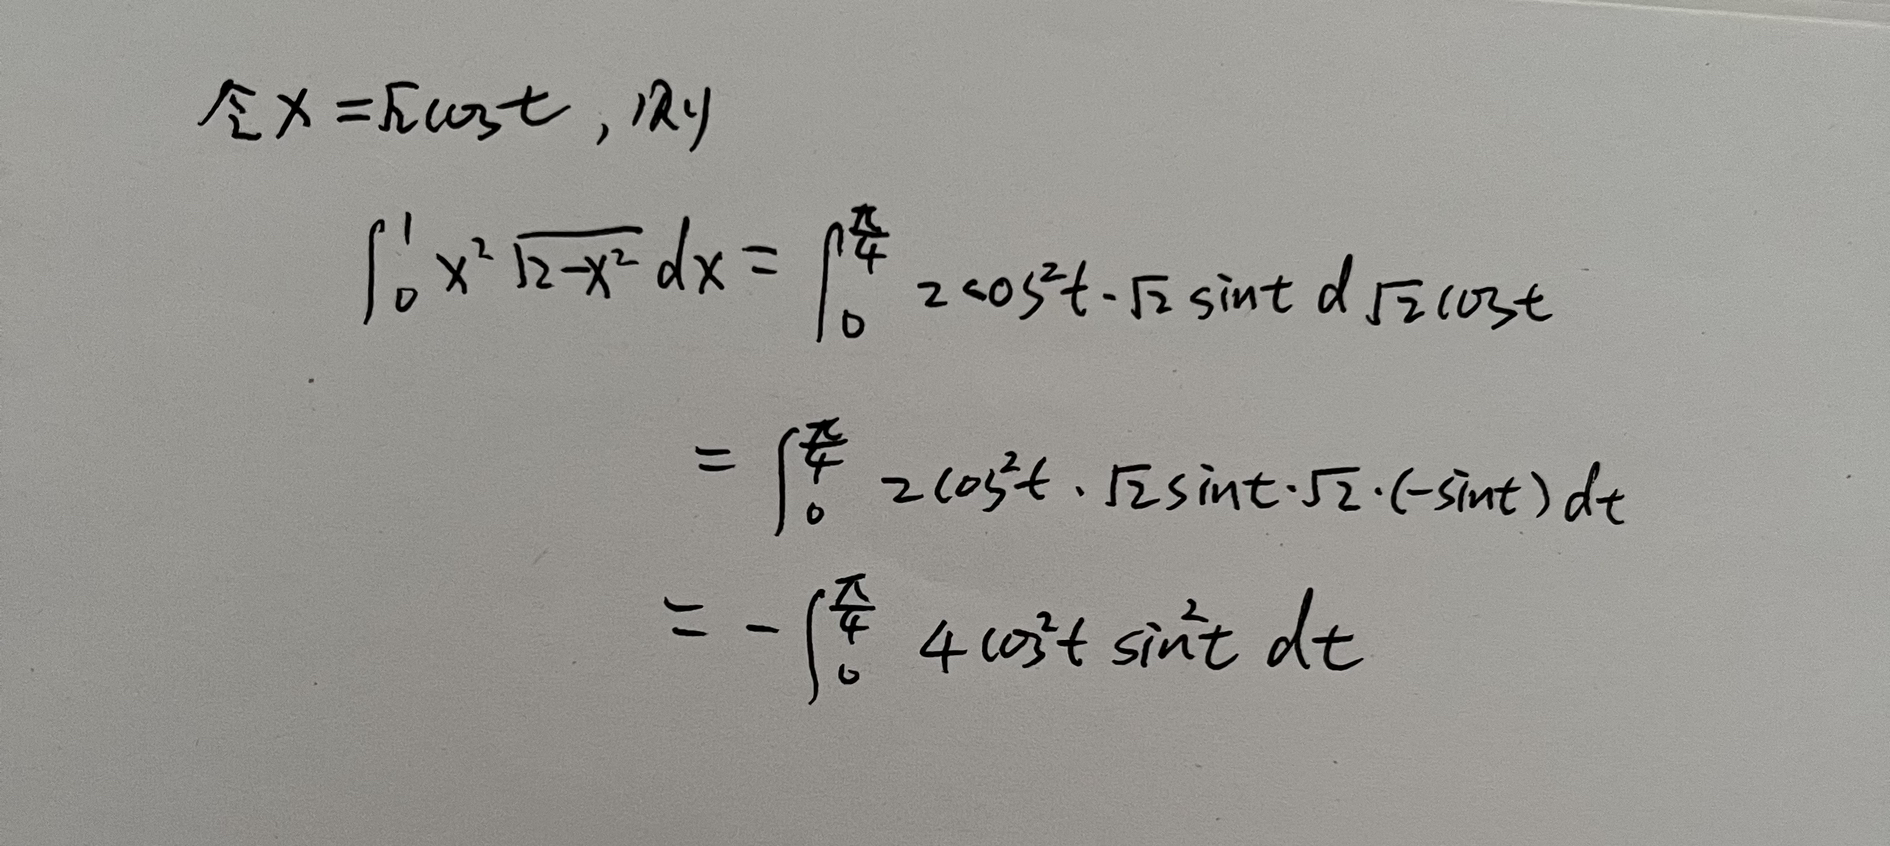 令x=√2cost,则
∫₀¹ x²√(2-x²) dx = ∫₀^(π/4) 2cos²t·√2 sint d√2cost
= ∫₀^(π/4) 2cos²t·√2sint·√2·(-sint)dt
= -∫₀^(π/4) 4cos²t sin²t dt